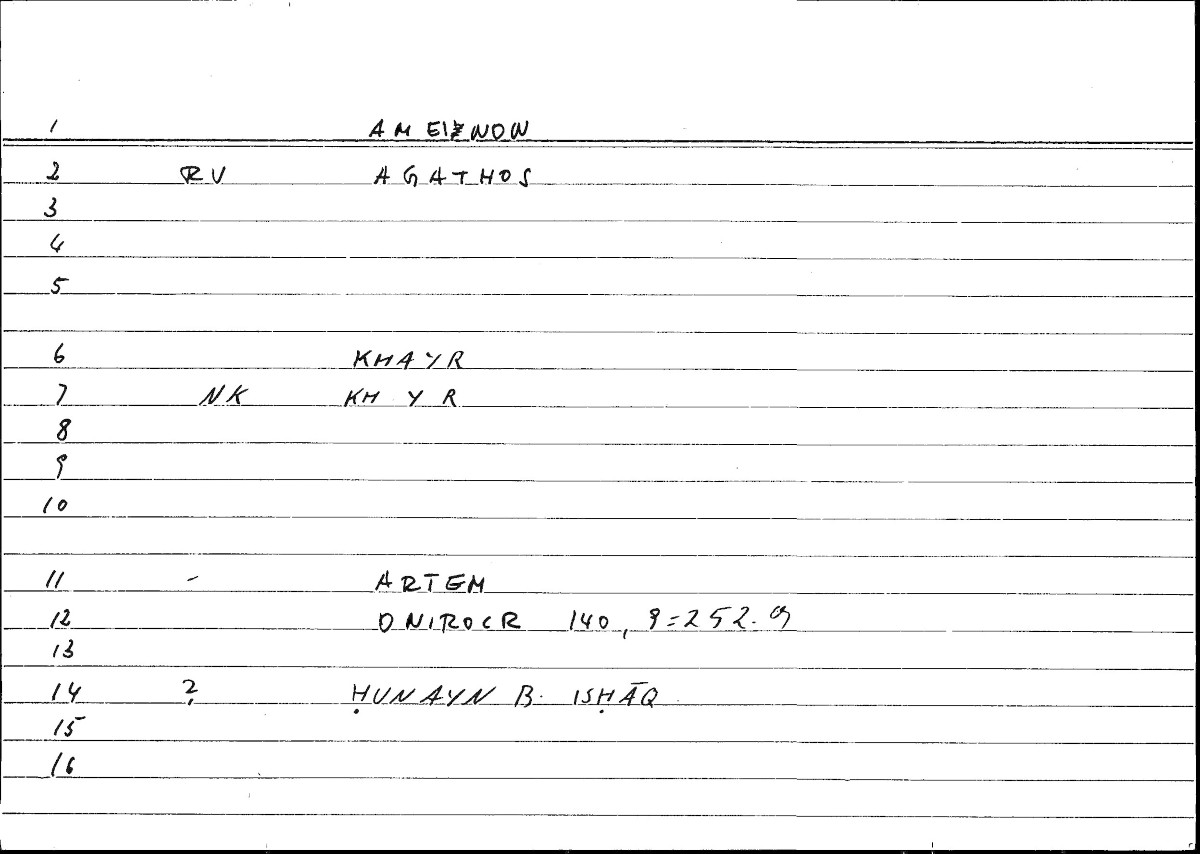 1 AMEINON
2 RV AGATHOS
3
4
5
6 KHAYR
7 NK KH Y R
8
9
10
11 - ARTEM
12 ONIROCR 140, 9=252.9
13
14 ? ḤUNAYN B. ISḤĀQ
15
16